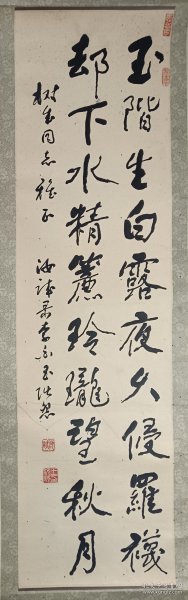 玉階生白露夜久侵羅襪
却下水精簾玲瓏望秋月
树生同志雅正